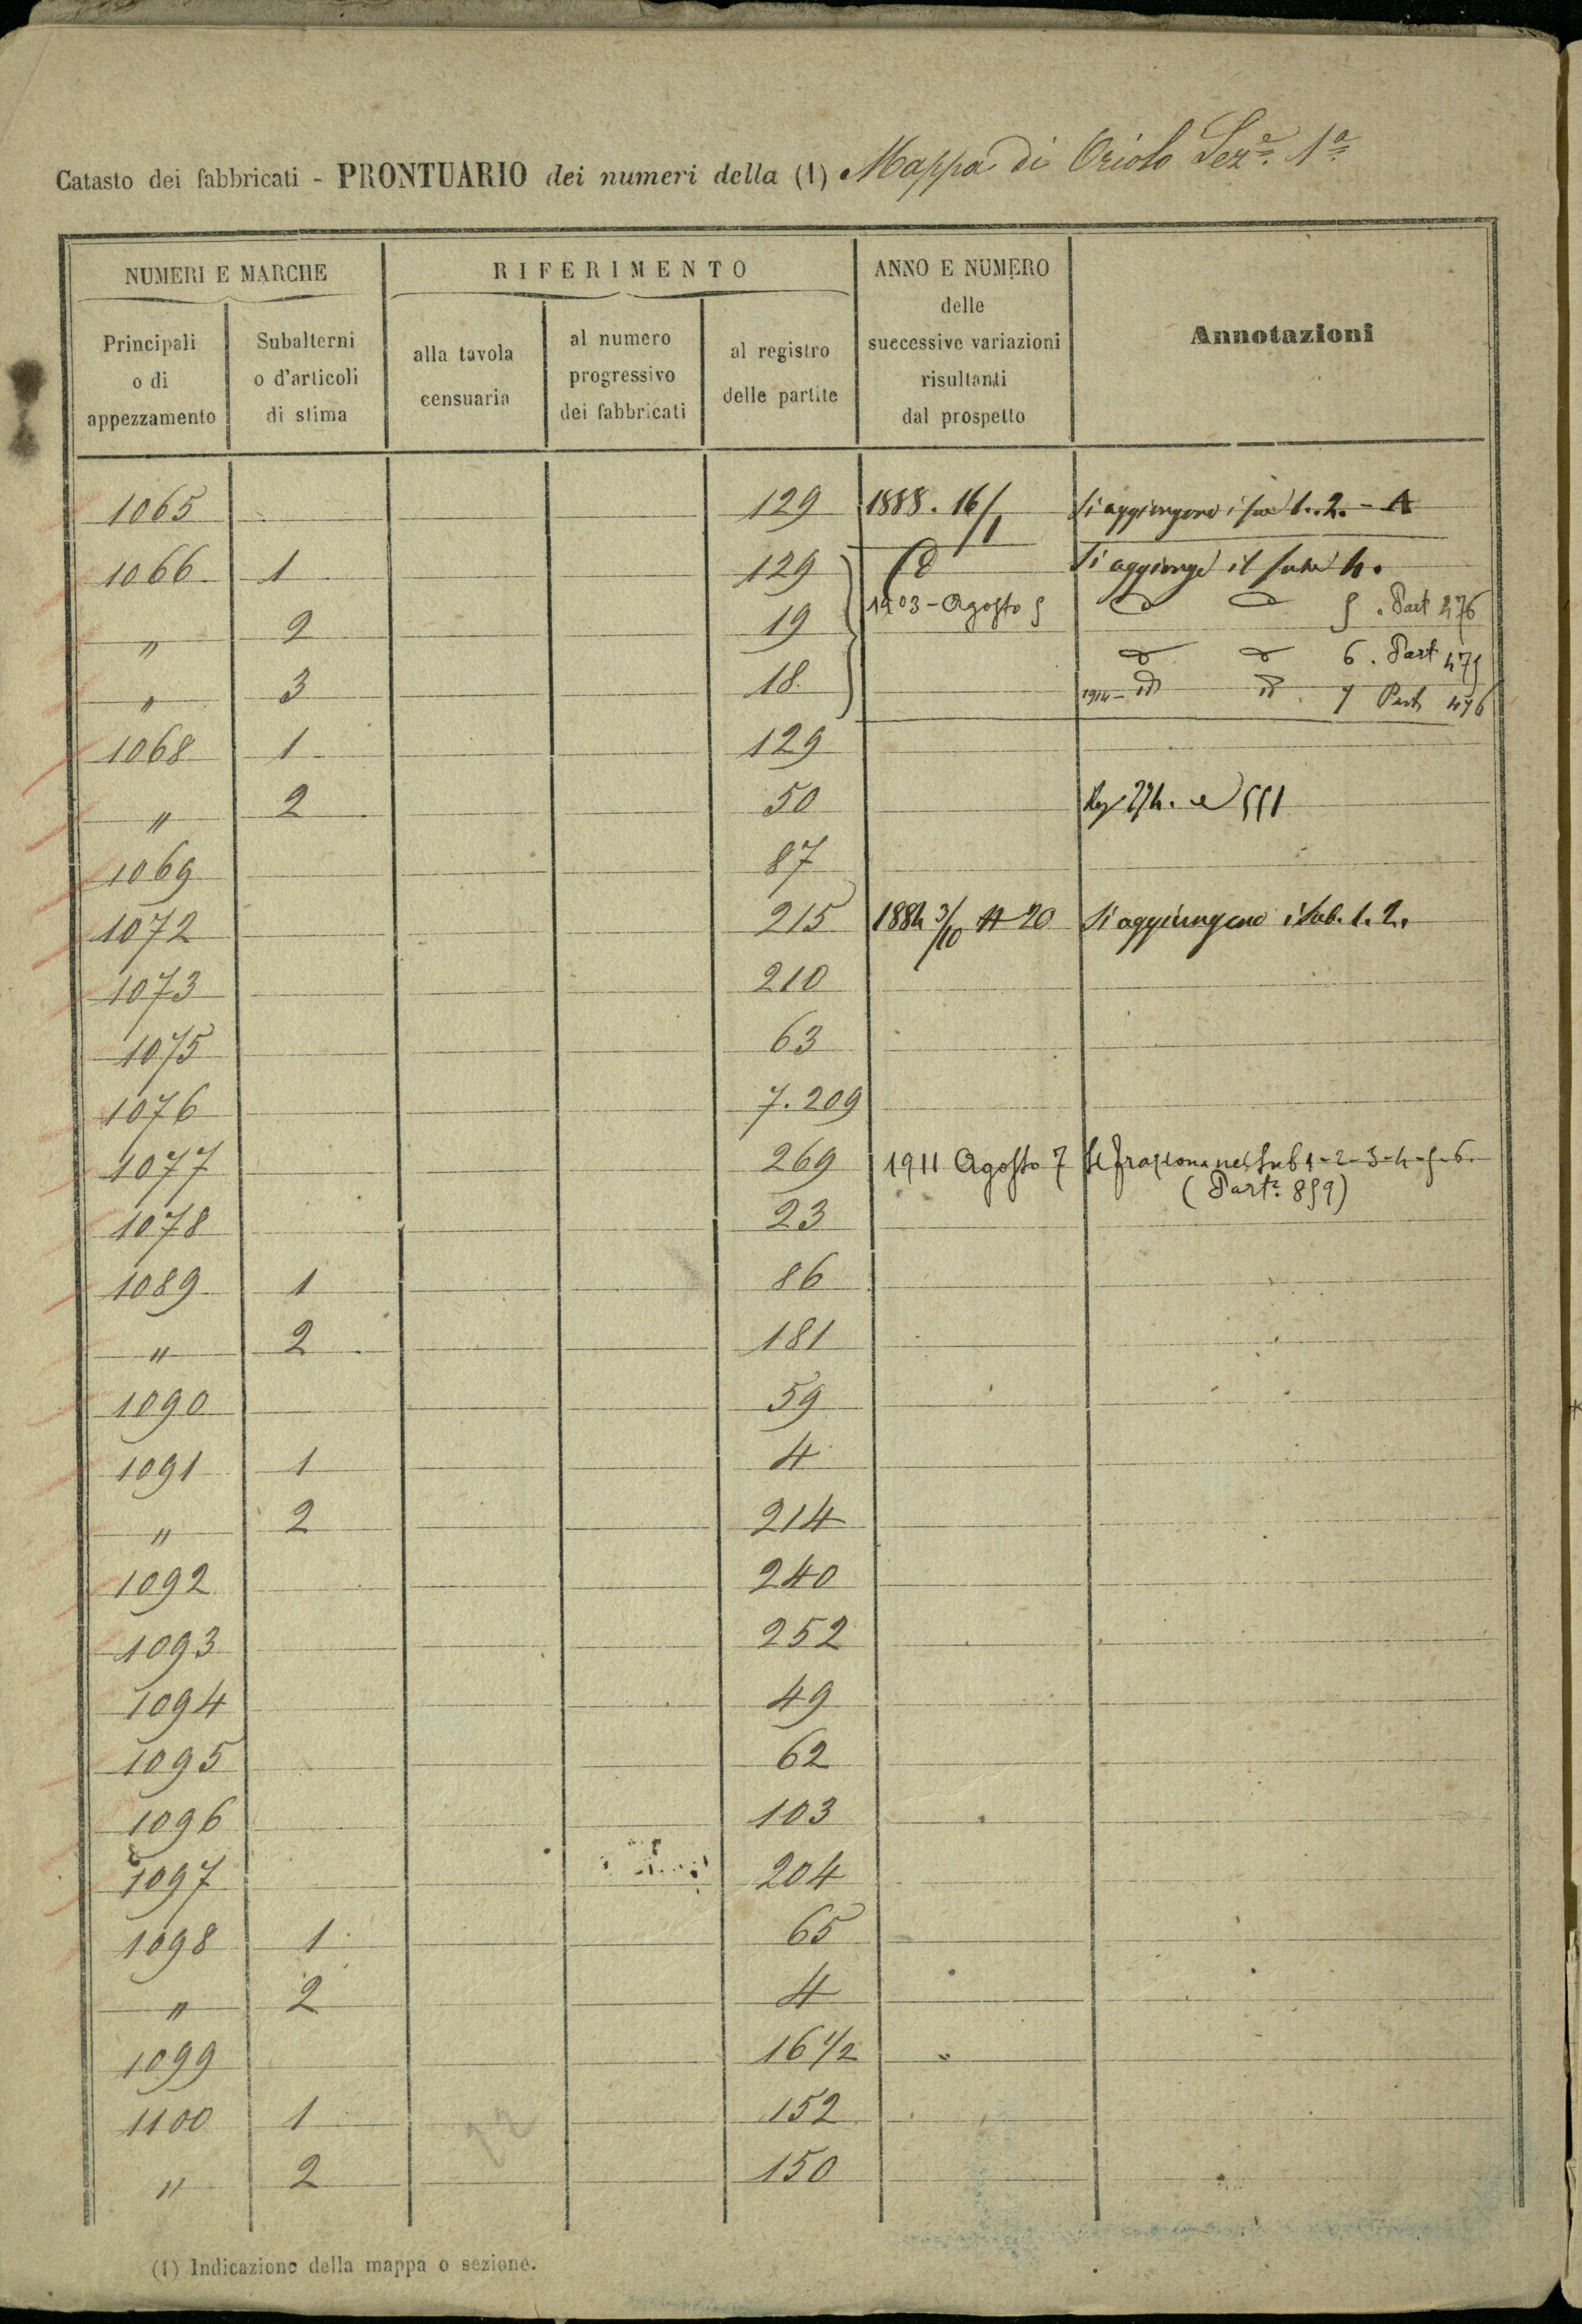 Catasto dei fabbricati - PRONTUARIO dei numeri della (1) Mappa di Oriolo Sez.e 1a
NUMERI E MARCHE
RIFERIMENTO
ANNO E NUMERO
delle
successive variazioni
risultanti
dal prospetto
Annotazioni
Principali
o di
appezzamento
Subalterni
o d'articoli
di stima
alla tavola
censuaria
al numero
progressivo
dei fabbricati
al registro
delle partite
1065 129 1888. 16/1 Si aggiungono i sub 1. 2. -
1066 1 129 Si aggiunge il sub 4.
" 2 19 1903 - Agosto 5 5. Part 476
6. Part 475
" 3 18 1914 - id id 7 Part 476
1068 1 129
" 2 50 e 551
1069 87
1072 215 1884 3/10 20 Si aggiungono i sub. 1. 2.
1073 210
1075 63
1076 7. 209
1077 269 1911 Agosto 7 Si fraziona nei Sub 1-2-3-4-5-6.
(Parta. 859)
1078 23
1089 1 86
" 2 181
1090 59
1091 1 4
" 2 214
1092 240
1093 252
1094 49
1095 62
1096 103
1097 204
1098 1 65
" 2 4
1099 16 1/2
1100 1 152
" 2 150
(1) Indicazione della mappa o sezione.